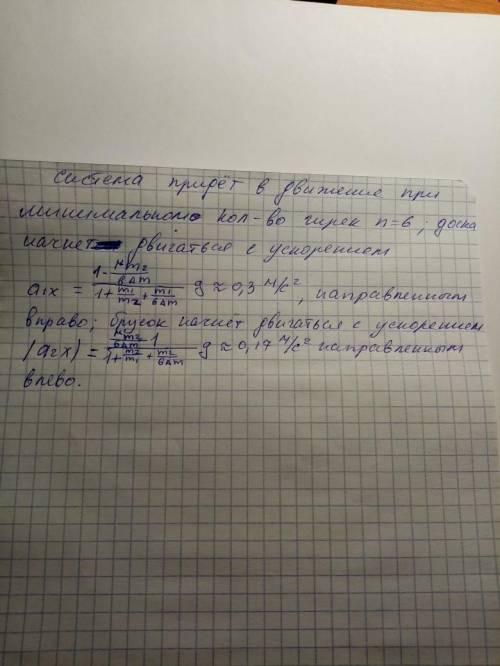 система придёт в движение при
минимальном кол-во гирек n=6; доска
начнет двигаться с ускорением
a₁ₓ = (1 - μm₂/6Δm)/(1 + m₁/m₂ + m₁/6Δm) g ≈ 0,3 м/с², направленным
вправо; брусок начнет двигаться с ускорением
|a₂ₓ| = (μm₂/6Δm - 1)/(1 + m₂/m₁ + m₂/6Δm) g ≈ 0,17 м/с² направленным
влево.